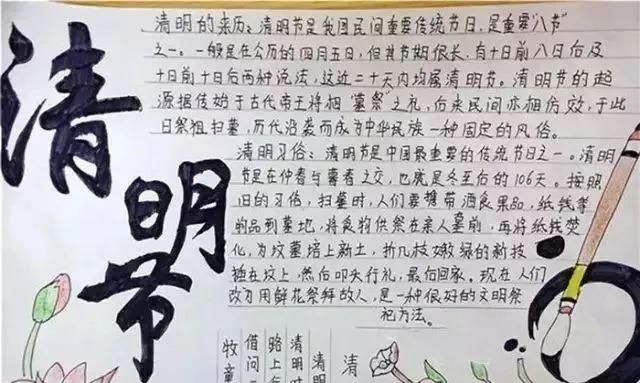 清明节
清明的来历:清明节是我国民间重要传统节日,是重要"八节"
之一。一般是在公历的四月五日,但其节期很长,有十日前八日后及
十日前十日后两种说法,这近二十天内均属清明节。清明节的起
源据传始于古代帝王将相"墓祭"之礼,后来民间亦相仿效,于此
日祭祖扫墓,历代沿袭而成为中华民族一种固定的风俗。
清明习俗:清明节是中国最重要的传统节日之一。清明
节是在仲春与暮春之交,也就是冬至后的106天。按照
旧的习俗,扫墓时,人们要携带酒食果品,纸钱等
的品到墓地,将食物供祭在亲人墓前,再将纸钱焚
化,为坟墓培上新土,折几枝嫩绿的新枝
插在坟上,然后叩头行礼,最后回家。现在人们
改为用鲜花祭拜故人,是一种很好的文明祭
祀方法。
清
清明
清明时
路上行
借问
牧童